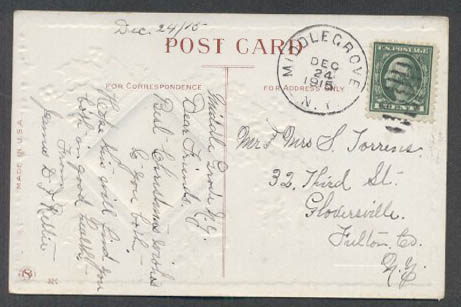 Dec. 24/15
POST CARD
FOR CORRESPONDENCE
FOR ADDRESS ONLY
MADE IN U.S.A.
Middle Grove N.Y.
Dear Friends,
Best Christmas wishes
to you both.
Hope this will find you
both in good health.
From
James & Nellie
MIDDLEGROVE
DEC
24
1915
N.Y.
U.S. POSTAGE
1 CENT 1
Mr & Mrs S. Torrens
32 Third St.
Gloversville.
Fulton Co.
N.Y.